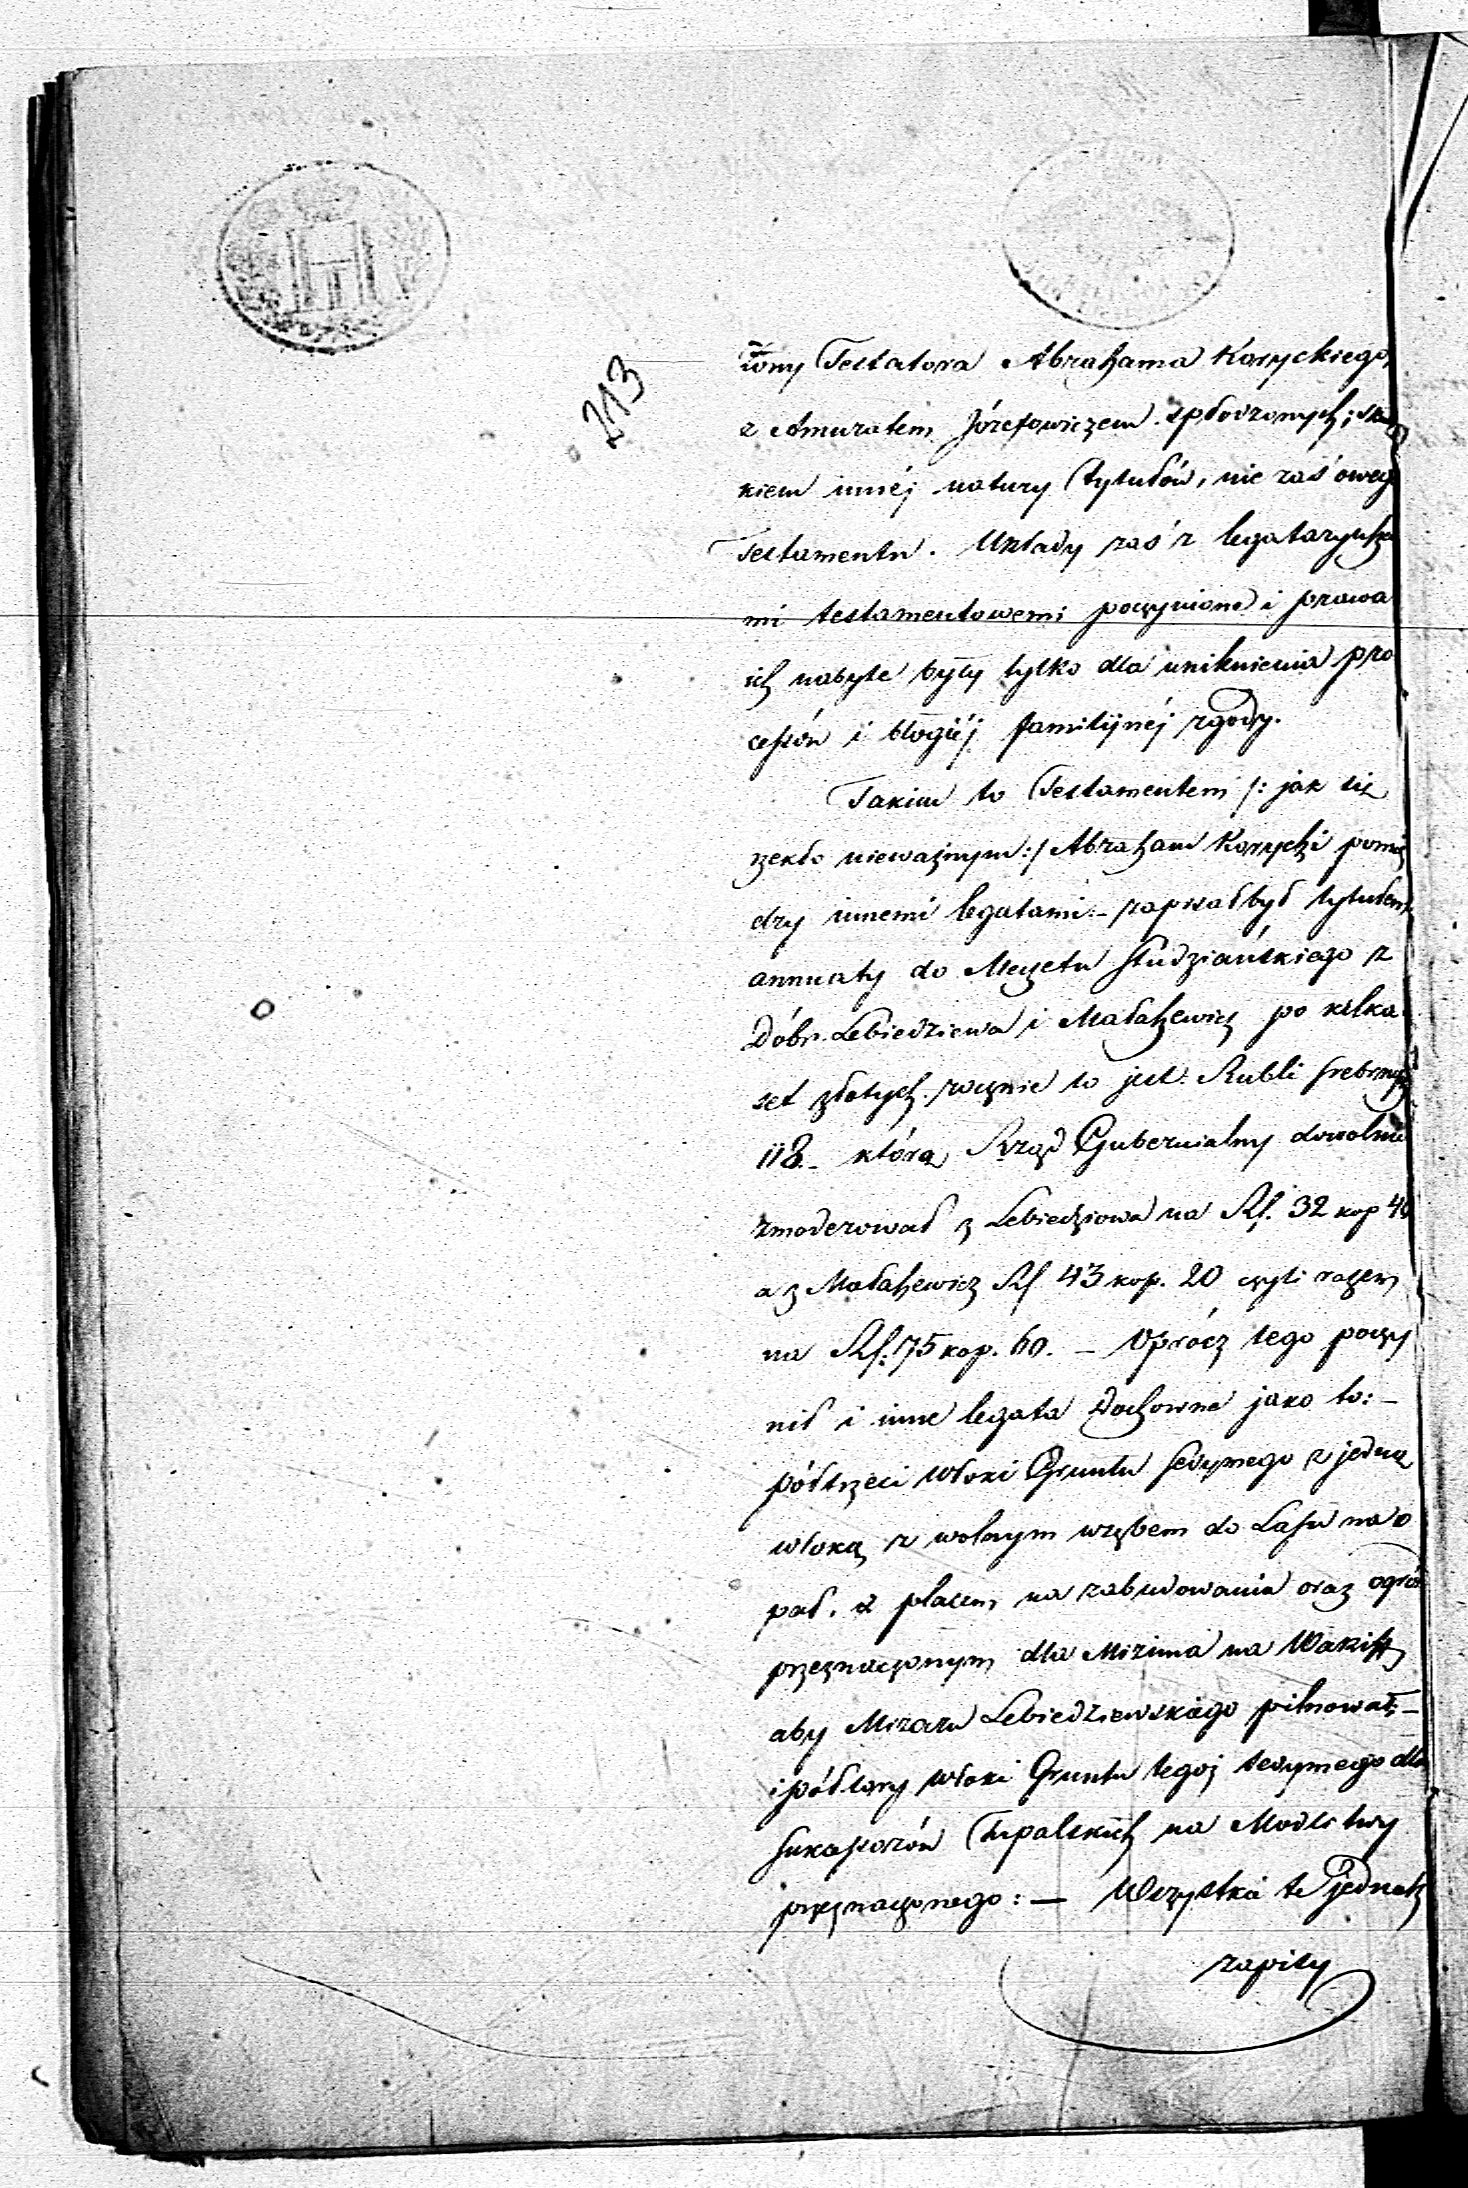 213
żony Testatora Abrahama Koryckiego,
z Amuratem Józefowiczem spłodzonych; skut
kiem innéj natury tytułów, nie zaś owego
Testamentu. Układy zaś z legataryusza
mi testamentowemi poczynione i prawa
ich nabyte były tylko dla uniknienia pro
cessów i błogiéj familijnéj zgody.
Takim to Testamentem /: jak się
rzekło nieważnym :/ Abraham Korycki pomię
dzy innemi legatami.- zapisał był tytułem
annuaty do Meczetu Studziańskiego z
Dóbr Lebiedziewa i Małaszewicz po kilka
set złotych rocznie to jest: Rubli srebrnych
118.- którą Rząd Gubernialny dowolnie
zmoderował z Lebiedziewa na Rs. 32 kop 40
a z Małaszewicz Rs 43 kop. 20 czyli razem
na Rs: 75 kop. 60. - Oprócz tego poczy
nił i inne legata Duchowne jako to: -
półtrzeci włoki Gruntu siedznego z jedną
włoką z wolnym wrębem do Lasu na o
pał, z placem na zabudowania oraz ogród
przeznaczonym dla Mizima na Wakiff
aby Mizaru Lebiedziewskiego pilnował; -
i półtory włoki Gruntu tegoż dla
Sukassorów Trupalskich na Modlitwy
przeznaczonego: - Wszystkie te jednak
zapisy